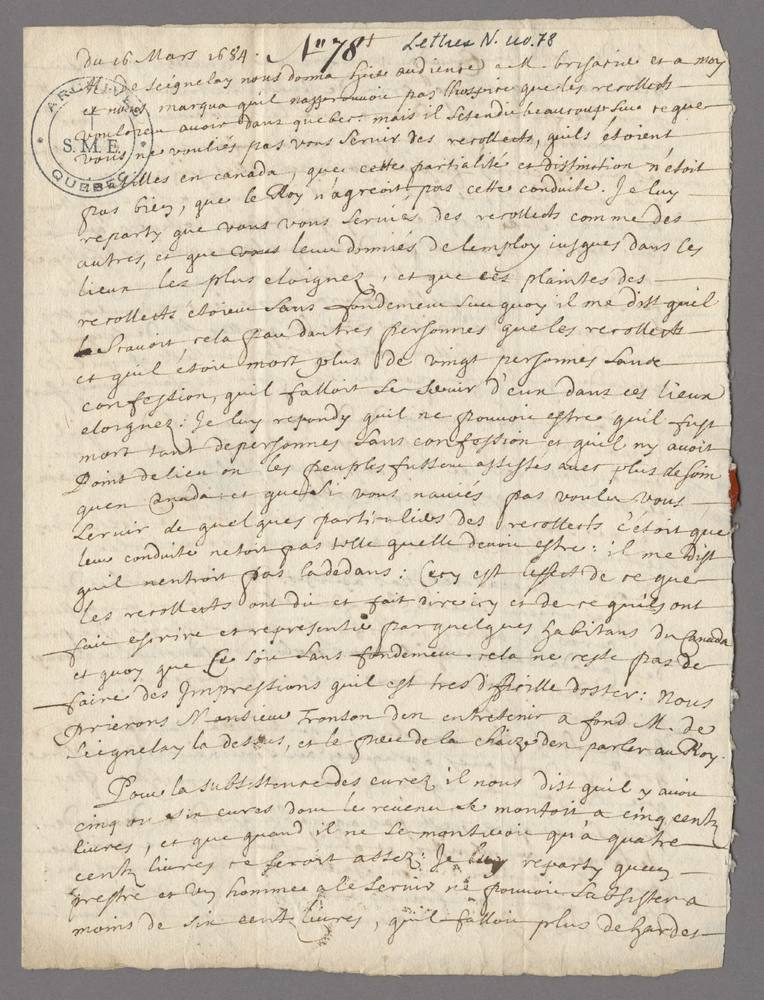 du 16 Mars 1684. Nº 78† Lettres N. no. 78
ARCHIVES S.M.E. QUEBEC
M. de Seignelay nous donna hier audience a M. brisacier et a moy
et nous marqua quil napprouvoit pas lhospice que les recollects
vouloient avoir dans quebec. mais il setendit beaucoup sur ce que
vous ne vouliés pas vous servir des recollects, quils étoient
utilles en canada, que cette partialité et distinction n'étoit
pas bien, que le Roy n'agreoit pas cette conduite. Je luy
reparty que vous vous serviés des recollects comme des
autres, et que vous leur donniés delemploy jusques dans les
lieux les plus eloignez, et que ces plaintes des
recollects étoient sans fondement sur quoy il me dist quil
scavoit cela par dautres personnes que les recollects
et quil étoit mort plus de vingt personnes sans
confession, quil falloit se servir d'eux dans ces lieux
eloignez: Je luy repondy quil ne pouvoit estre quil fust
mort tant depersonnes sans confession et quil ny avoit
Point delieu ou les peuples fussent assistés avec plus desoin
quen Canada et que si vous naviés pas voulu vous
servir de quelques particuliers des recollects c'étoit que
leur conduite netoit pas telle quelle devoit estre: il me dist
quil nentroit pas ladedans: Cecy est leffect de ce que
les recollects ont dit et fait dire icy et de ce quils ont
fait escrire et representer par quelques habitans du Canada
et quoy que ce soit sans fondement cela ne reste pas de
faire des Impressions quil est tres difficille doster: nous
prierons Monsieur Tronson den entretenir a fond M. de
Seignelay la dessus, et le pere de la chaize den parler au Roy.
Pour la subsistence des curez il nous dist quil y avoit
cinq ou six cures dont le revenu se montoit a cinq centz
livres, et que quand il ne se monteroit qu'a quatre
centz livres ce seroit assez: Je luy reparty quun
prestre et un homme a le servir ne pouvoit subsister a
moins de six cent livres, quil falloit plus de hardes